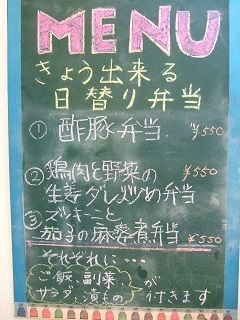 MENU
きょう出来る
日替り弁当
① 酢豚弁当 ¥550
② 鶏肉と野菜の
生姜ダレ炒め弁当 ¥550
③ ズッキーニと
茄子の麻婆煮弁当 ¥550
それぞれに…
ご飯、副菜、が
サラダ、漬もの 付きます